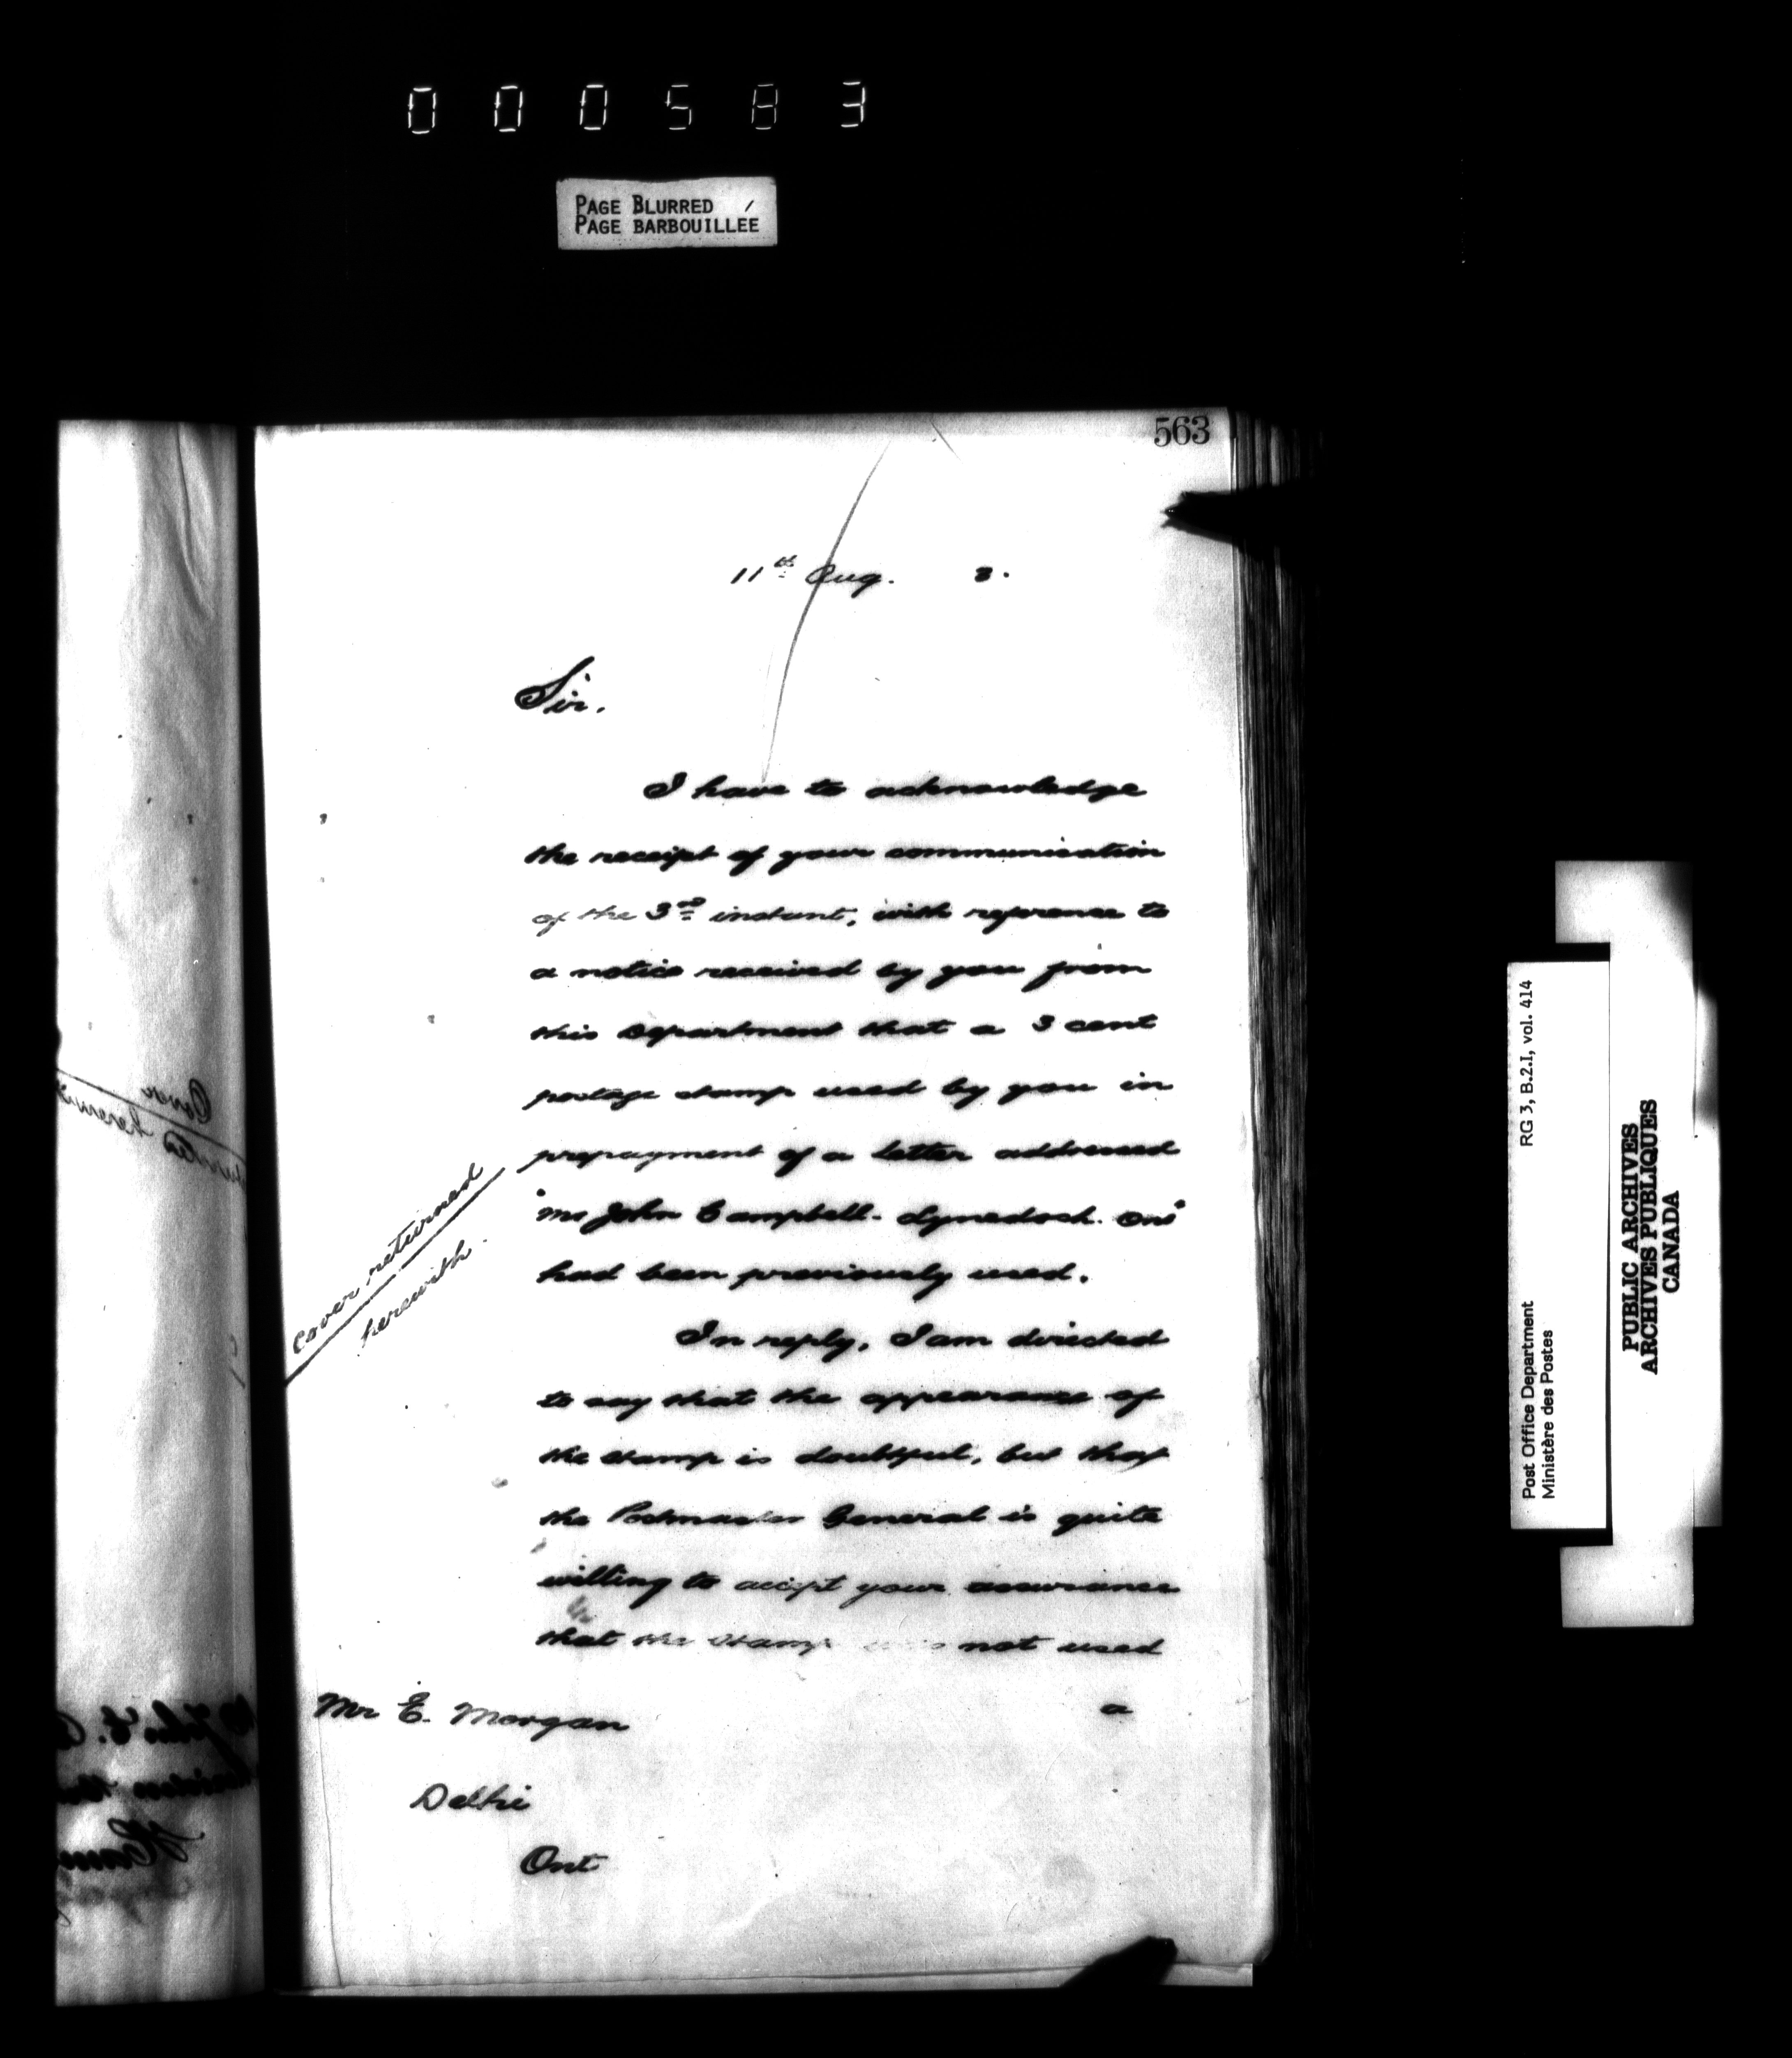 000583
PAGE BLURRED
PAGE BARBOUILLÉE
563
11th Aug. 3.
Sir.
I have to acknowledge
the receipt of your communication
of the 3rd instant, with reference to
a notice received by you from
this Department that a 3 cent
postage stamp used by you in
prepayment of a letter addressed
"Mr John Campbell. Lynedoch. Ont"
had been previously used.
In reply, I am directed
to say that the appearance of
the stamp is doubtful, but that
the Postmaster General is quite
willing to accept your assurance
that the stamp was not used
a
Cover returned
herewith.
Mr E. Morgan
Delhi
Ont
Post Office Department RG 3, B.2.I, vol. 414
Ministère des Postes
PUBLIC ARCHIVES
ARCHIVES PUBLIQUES
CANADA